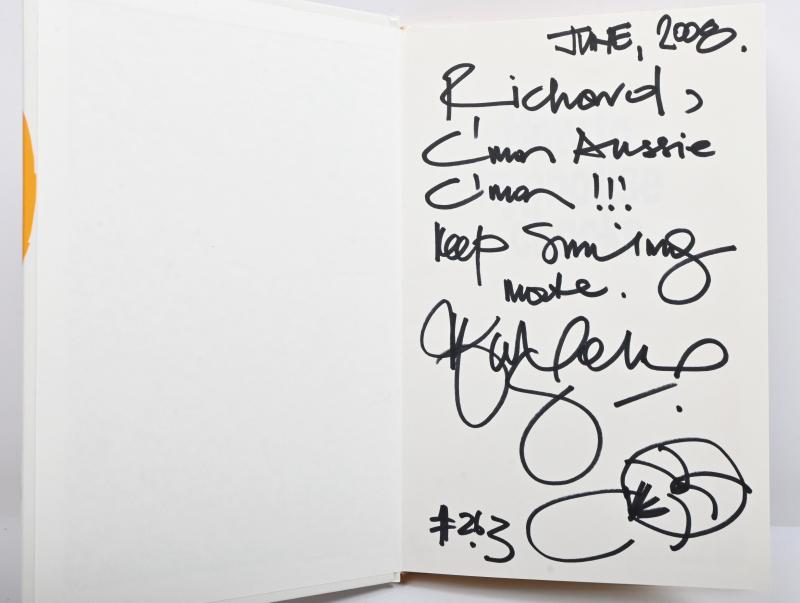 JUNE, 2008.
Richard,
C'mon Aussie
C'mon !!!
Keep Smiling
mate.
#263